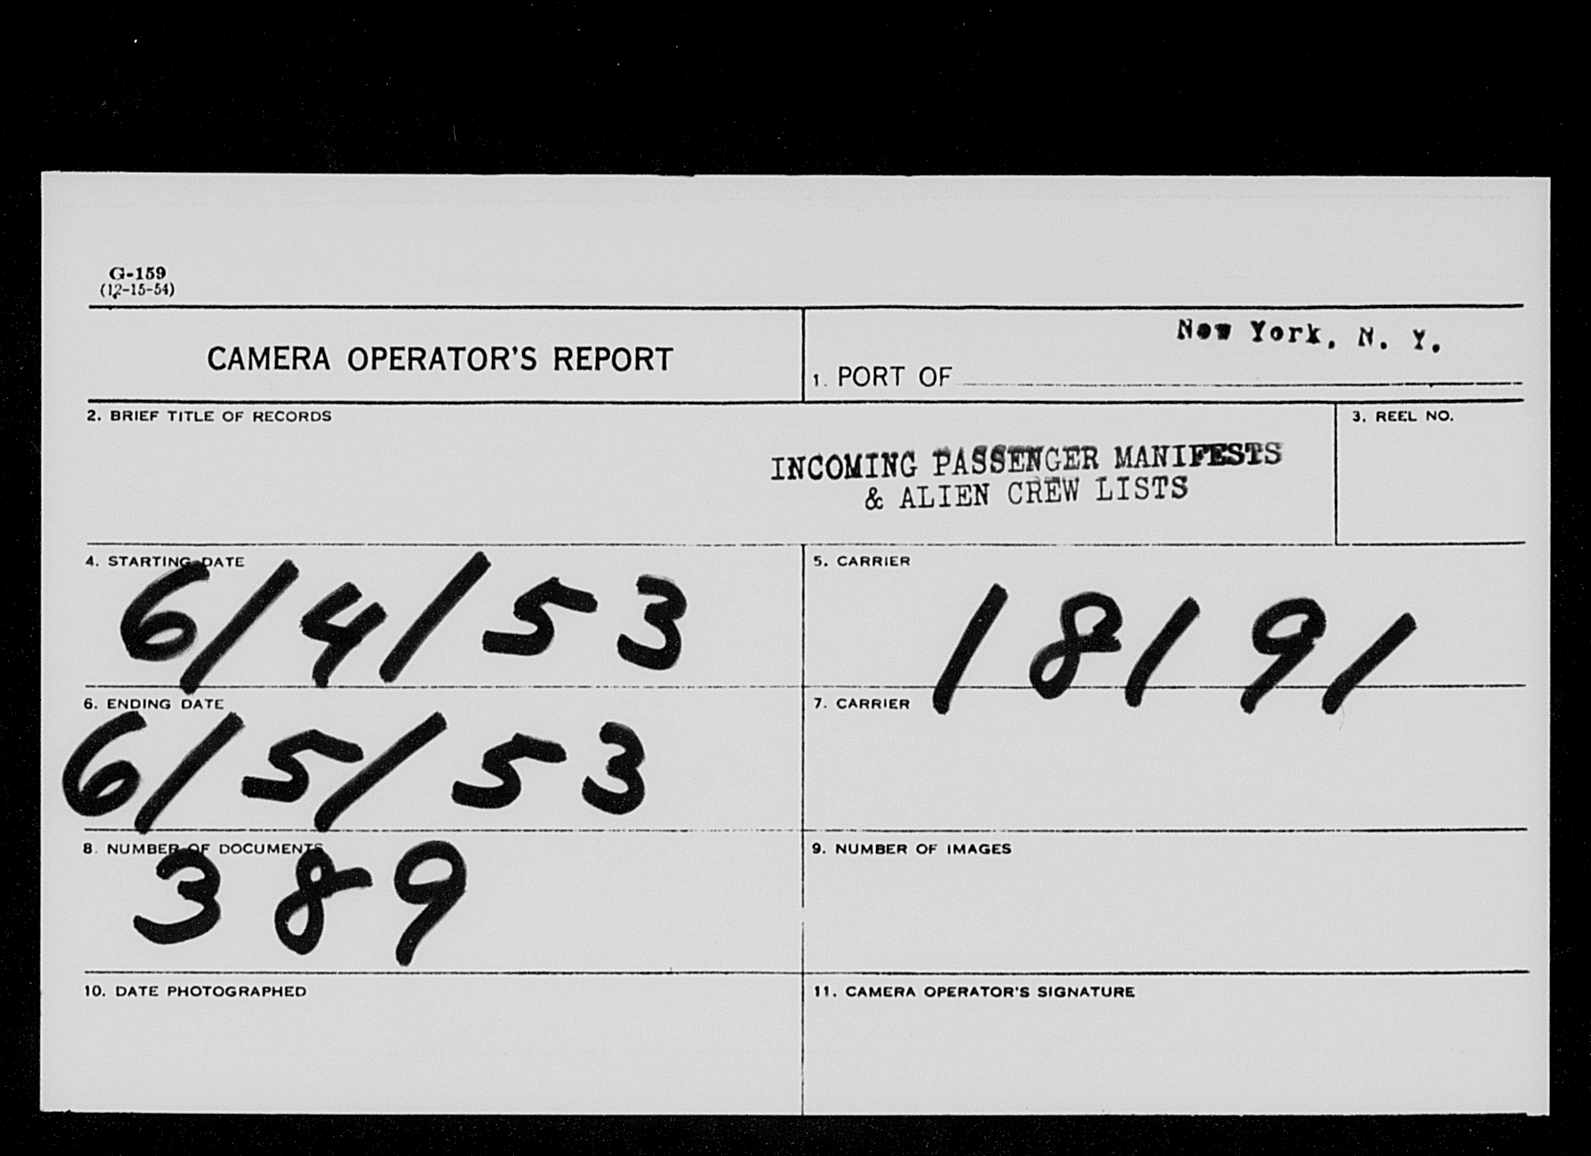 G-159
(12-15-54)
CAMERA OPERATOR'S REPORT
New York, N. Y.
1. PORT OF
2. BRIEF TITLE OF RECORDS
INCOMING PASSENGER MANIFESTS
& ALIEN CREW LISTS
3. REEL NO.
4. STARTING DATE
6/4/53
5. CARRIER
18191
6. ENDING DATE
6/5/53
7. CARRIER
8. NUMBER OF DOCUMENTS
389
9. NUMBER OF IMAGES
10. DATE PHOTOGRAPHED
11. CAMERA OPERATOR'S SIGNATURE